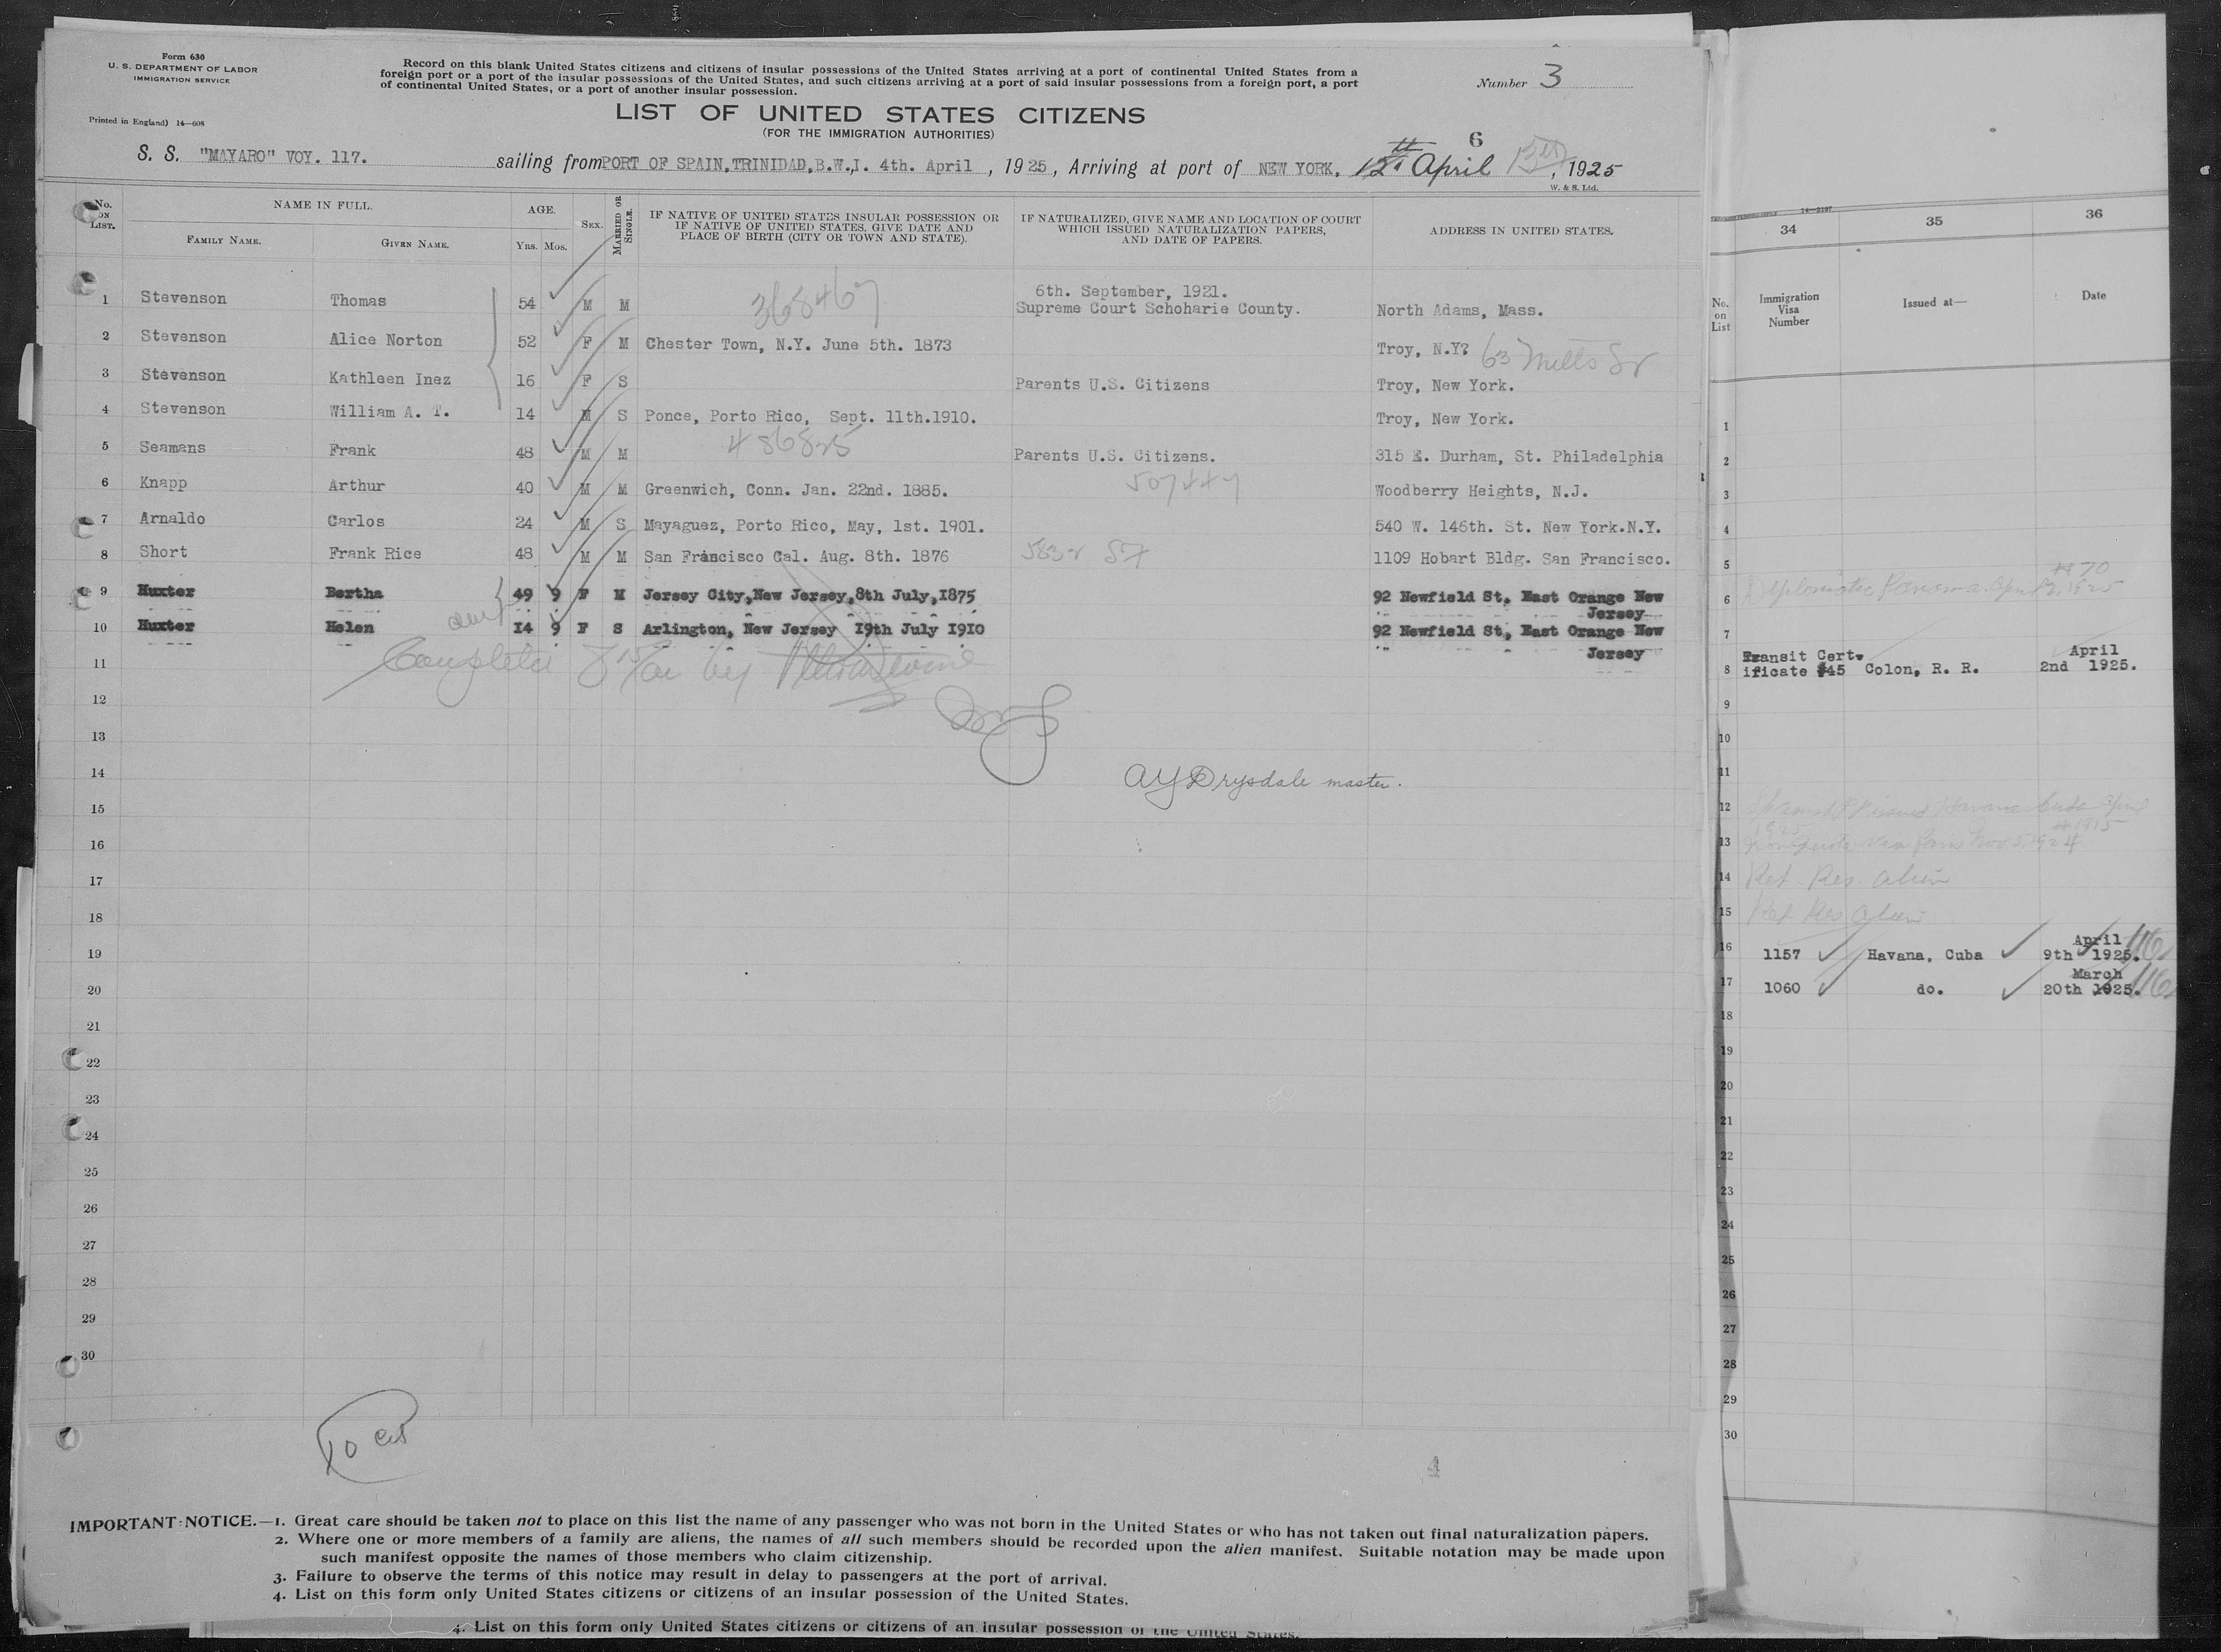 Form 630
U. S. DEPARTMENT OF LABOR
IMMIGRATION SERVICE
Printed in England) 14—608
Record on this blank United States citizens and citizens of insular possessions of the United States arriving at a port of continental United States from a
foreign port or a port of the insular possessions of the United States, and such citizens arriving at a port of said insular possessions from a foreign port, a port
of continental United States, or a port of another insular possession.
Number 3
LIST OF UNITED STATES CITIZENS
(FOR THE IMMIGRATION AUTHORITIES)
6
S. S. "MAYARO" VOY. 117. sailing from PORT OF SPAIN, TRINIDAD, B.W.I. 4th. April, 1925, Arriving at port of NEW YORK, 12th April 13th, 1925
W. & S. Ltd.
No. ON LIST. NAME IN FULL. AGE. SEX. MARRIED OR SINGLE. IF NATIVE OF UNITED STATES INSULAR POSSESSION OR IF NATIVE OF UNITED STATES, GIVE DATE AND PLACE OF BIRTH (CITY OR TOWN AND STATE). IF NATURALIZED, GIVE NAME AND LOCATION OF COURT WHICH ISSUED NATURALIZATION PAPERS, AND DATE OF PAPERS. ADDRESS IN UNITED STATES.
FAMILY NAME. GIVEN NAME. YRS. MOS.
1 Stevenson Thomas 54 M M 368467 6th. September, 1921. Supreme Court Schoharie County. North Adams, Mass.
2 Stevenson Alice Norton 52 F M Chester Town, N.Y. June 5th. 1873 Troy, N.Y? 63 Mills St
3 Stevenson Kathleen Inez 16 F S Parents U.S. Citizens Troy, New York.
4 Stevenson William A. T. 14 M S Ponce, Porto Rico, Sept. 11th.1910. Troy, New York.
5 Seamans Frank 48 M M 486825 Parents U.S. Citizens. 315 E. Durham, St. Philadelphia
6 Knapp Arthur 40 M M Greenwich, Conn. Jan. 22nd. 1885. 507447 Woodberry Heights, N.J.
7 Arnaldo Carlos 24 M S Mayaguez, Porto Rico, May, 1st. 1901. 540 W. 146th. St. New York.N.Y.
8 Short Frank Rice 48 M M San Francisco Cal. Aug. 8th. 1876 1109 Hobart Bldg. San Francisco.
9 Huxter Bertha 49 9 F M Jersey City,New Jersey,8th July,1875 92 Newfield St, East Orange New Jersey
10 Huxter Helen 14 9 F S Arlington, New Jersey 19th July 1910 92 Newfield St, East Orange New Jersey
11
Completed
12
13
14
AY Drysdale master.
15
16
17
18
19
20
21
22
23
24
25
26
27
28
29
30
10
4
IMPORTANT NOTICE.—1. Great care should be taken not to place on this list the name of any passenger who was not born in the United States or who has not taken out final naturalization papers.
2. Where one or more members of a family are aliens, the names of all such members should be recorded upon the alien manifest. Suitable notation may be made upon
such manifest opposite the names of those members who claim citizenship.
3. Failure to observe the terms of this notice may result in delay to passengers at the port of arrival.
4. List on this form only United States citizens or citizens of an insular possession of the United States.
4. List on this form only United States citizens or citizens of an insular possession of the United States.
14—2107
34 35 36
No. on List Immigration Visa Number Issued at— Date
1
2
3
4
5
#70
6 Diplomatic Panama. Apr 2, 1925
7
8 Transit Certificate #45 Colon, R. R. April 2nd 1925.
9
10
11
12
13
14 Ret. Res. Alien
15 Ret Res Alien
16 1157 Havana, Cuba April 9th 1925.
17 1060 do. March 20th 1925.
18
19
20
21
22
23
24
25
26
27
28
29
30